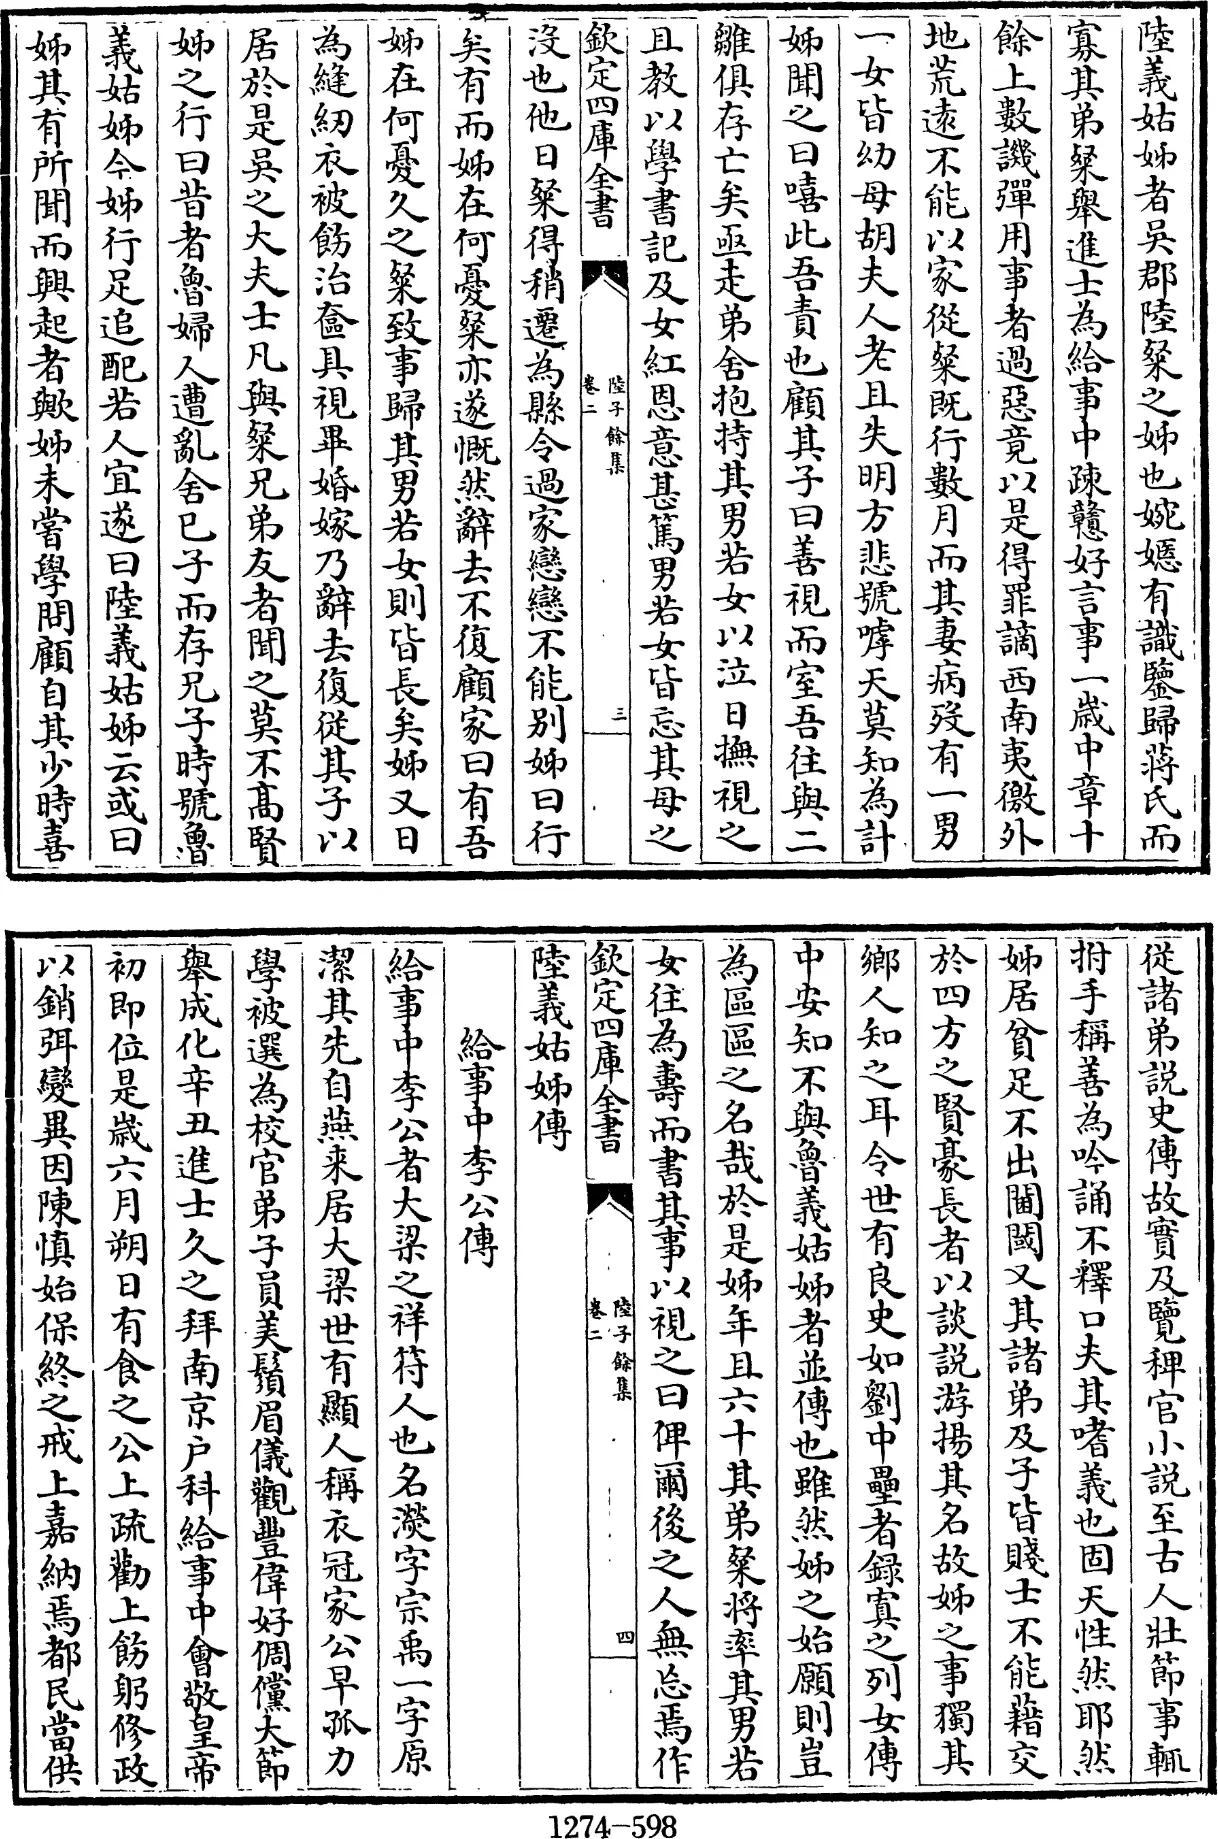 陸義姑姊者吳郡陸粲之姊也婉嫕有識鑒歸蔣氏而
寡其弟粲舉進士為給事中疎戇好言事一歲中章十
餘上數譏彈用事者過惡竟以是得罪謫西南夷徼外
地荒遠不能以家從粲既行數月而其妻病歿有一男
一女皆幼母胡夫人老且失明方悲號嘑天莫知為計
姊聞之曰嘻此吾責也顧其子曰善視而室吾往與二
雛俱存亡矣亟走弟舍抱持其男若女以泣日撫視之
且教以學書記及女紅恩意甚篤男若女皆忘其母之
欽定四庫全書
陸子餘集
卷二
三
沒也他日粲得稍遷為縣令過家戀戀不能别姊曰行
矣有而姊在何憂粲亦遂慨然辭去不復顧家曰有吾
姊在何憂久之粲致事歸其男若女則皆長矣姊又日
為縫紉衣被飭治奩具視畢婚嫁乃辭去復從其子以
居於是吳之大夫士凡與粲兄弟友者聞之莫不髙賢
姊之行曰昔者魯婦人遭亂舍已子而存兄子時號魯
義姑姊今姊行足追配若人宜遂曰陸義姑姊云或曰
姊其有所聞而興起者歟姊未嘗學問顧自其少時喜
從諸弟説史傳故實及覽稗官小説至古人壯節事輒
拊手稱善為吟誦不釋口夫其嗜義也固天性然耶然
姊居貧足不出閫閾又其諸弟及子皆賤士不能藉交
於四方之賢豪長者以談説游揚其名故姊之事獨其
鄉人知之耳令世有良史如劉中壘者録寘之列女傳
中安知不與魯義姑姊者並傳也雖然姊之始願則豈
為區區之名哉於是姊年且六十其弟粲将率其男若
女往為壽而書其事以視之曰俾爾後之人無忘焉作
欽定四庫全書
陸子餘集
卷二
四
陸義姑姊傳
給事中李公傳
給事中李公者大梁之祥符人也名濙字宗禹一字原
潔其先自燕来居大梁世有顯人稱衣冠家公早孤力
學被選為校官弟子員美鬚眉儀觀豐偉好倜儻大節
舉成化辛丑進士久之拜南京户科給事中會敬皇帝
初即位是歲六月朔日有食之公上疏勸上飭躬修政
以銷弭變異因陳慎始保終之戒上嘉納焉都民當供
1274-598